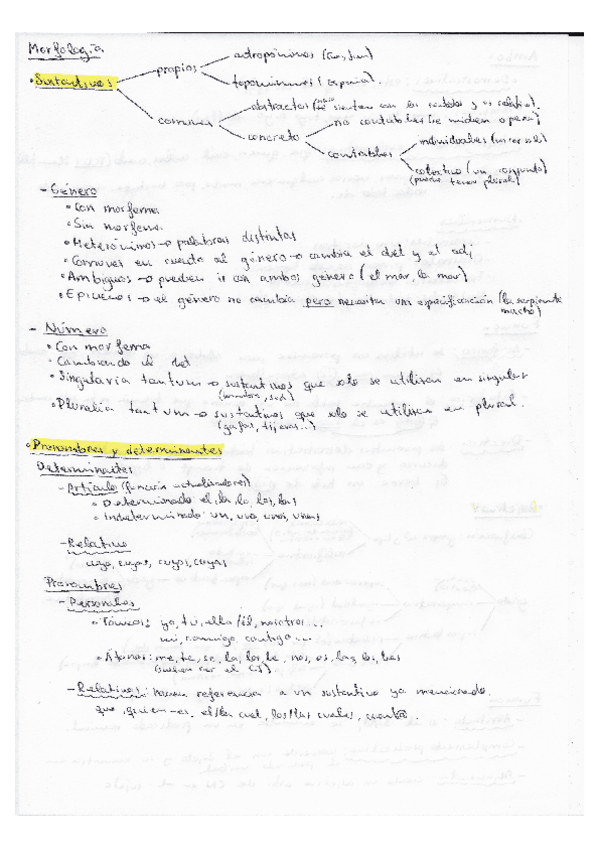 Morfología
• Sustantivos
propios
antropónimos (
topónimos (España).
comunes
abstractos (no se sienten con los sentidos y
concreto
no contables (se miden o pesan)
contables
individuales (
colectivo (un conjunto)
(puede tener plural)
- Género
• Con morfema
• Sin morfema
• Heterónimos → palabras distintas
• Comunes en cuanto al género → cambia el det y el adj
• Ambiguos → pueden ir con ambos género (el mar, la mar)
• Epicenos → el género no cambia pero necesitan una especificación (la serpiente
macho)
- Número
• Con morfema
• Cambiando el det
• Singularia tantum → sustantivos que solo se utilizan en singular
(hambre, sed)
• Pluralia tantum → sustantivos que solo se utilizan en plural.
(gafas, tijeras...)
• Pronombres y determinantes
Determinantes
- Artículo (función actualizadores)
• Determinado el, la, lo, los, las
• Indeterminado un, una, unos, unas
- Relativo
cuyo, cuyas, cuyos, cuyas
Pronombres
- Personales
• Tónicos: yo, tú, ella/él, nosotros...
mí, conmigo contigo...
• Átonos: me, te, se, la, lo, le, nos, os, las, los, les
(suelen ser el CD)
- Relativos: hacen referencia a un sustantivo ya mencionado.
que, quien-es, el/la cual, los/las cuales, cuant@.